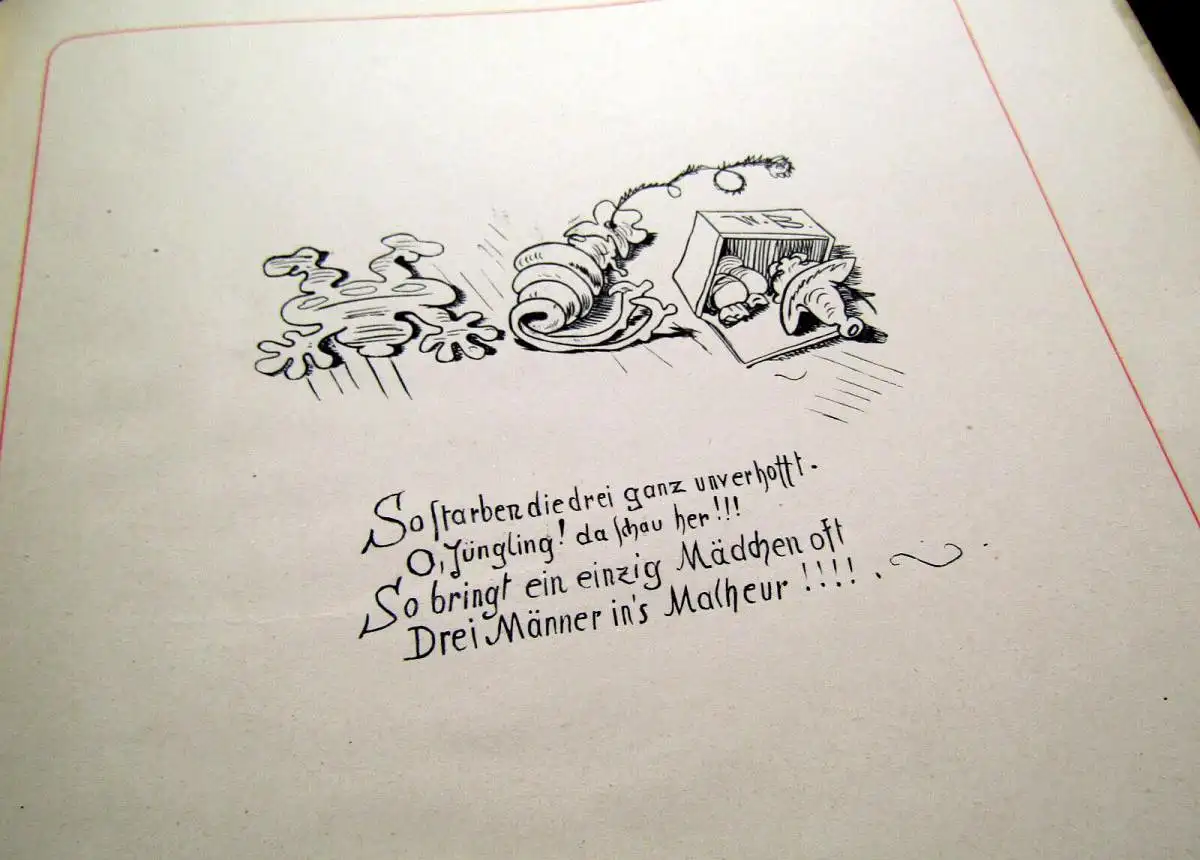 W. B.
So starben die drei ganz unverhofft.
O, Jüngling! da schau her!!!
So bringt ein einzig Mädchen oft
Drei Männer in's Malheur!!!!.